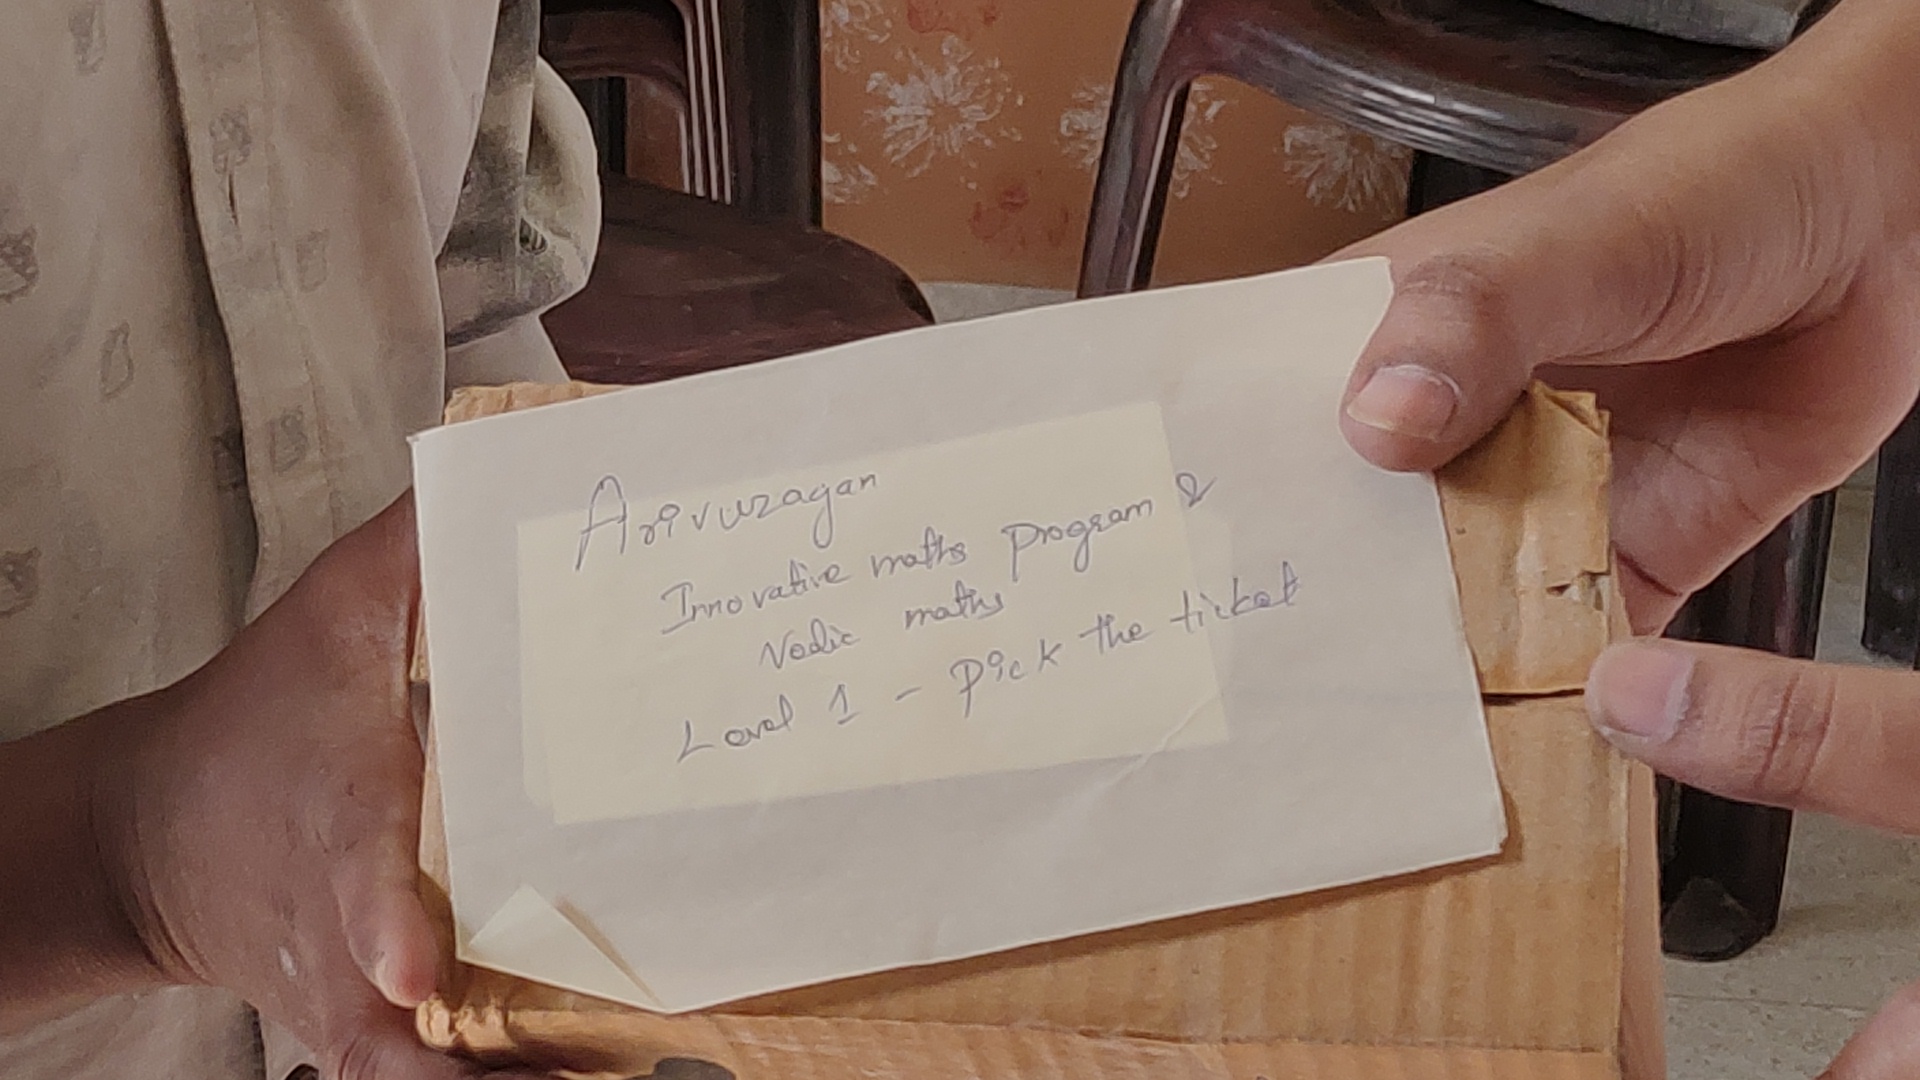 Arivuzagan
Innovative maths program &
Vedic maths
Level 1 - Pick the ticket